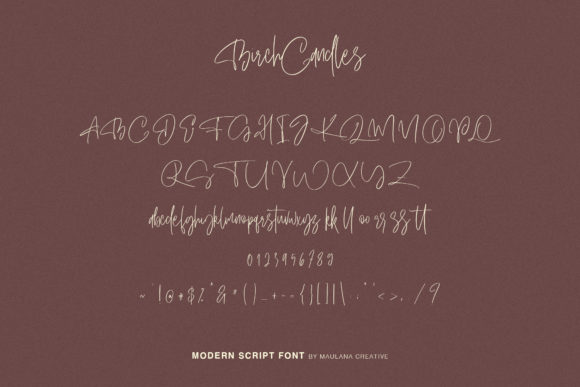 Birch Candles
ABCDEFGHIJKLMNOPQ
RSTUVWXYZ
abcdefghijklmnopqrstuvwxyz kk ll oo rr ss tt
0123456789
~ ` ! @ # $ % ^ & * ( ) _ + - = { } [ ] | \ : ; " ' < > , . / ?
MODERN SCRIPT FONT BY MAULANA CREATIVE